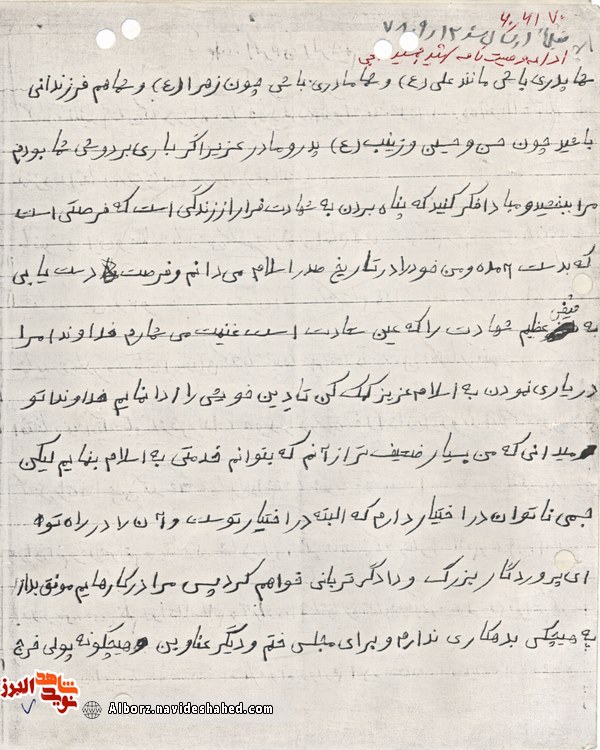 ۷۰ ۶۱ ۶۰
۷۸،۹،۱۲
ادامه وصیت نامه شهید
شما پدری باشی مانند علی (ع) و شما مادری باشی چون زهرا (ع) و شما هم فرزندانی
باشید چون حسن و حسین و زینب (ع) پدر و مادر عزیز اگر باری بر دوش شما بودم
مرا ببخشید و مبادا فکر کنید که پناه بردن به شهادت فرار از زندگی است که فرصتی است
که بدست آمده و من خود را در تاریخ صدر اسلام می دانم و فرصت دست یابی
به فیض عظیم شهادت را که عین سعادت است غنیمت می شمارم خداوندا مرا
در یاری نمودن به اسلام عزیز کمک کن تا دین خویش را ادا نمایم خداوندا تو
میدانی که من بسیار ضعیف تر از آنم که بتوانم خدمتی به اسلام بنمایم لیکن
جسمی ناتوان در اختیار دارم که البته در اختیار توست و آن را در راه تو
ای پروردگار بزرگ و دادگر قربانی خواهم کرد پس مرا در کارهایم موفق بدار
به هیچکس بدهکاری ندارم و برای مجلس ختم و دیگر عناوین هیچگونه پولی خرج
نوید شاهد البرز
Alborz.navideshahed.com